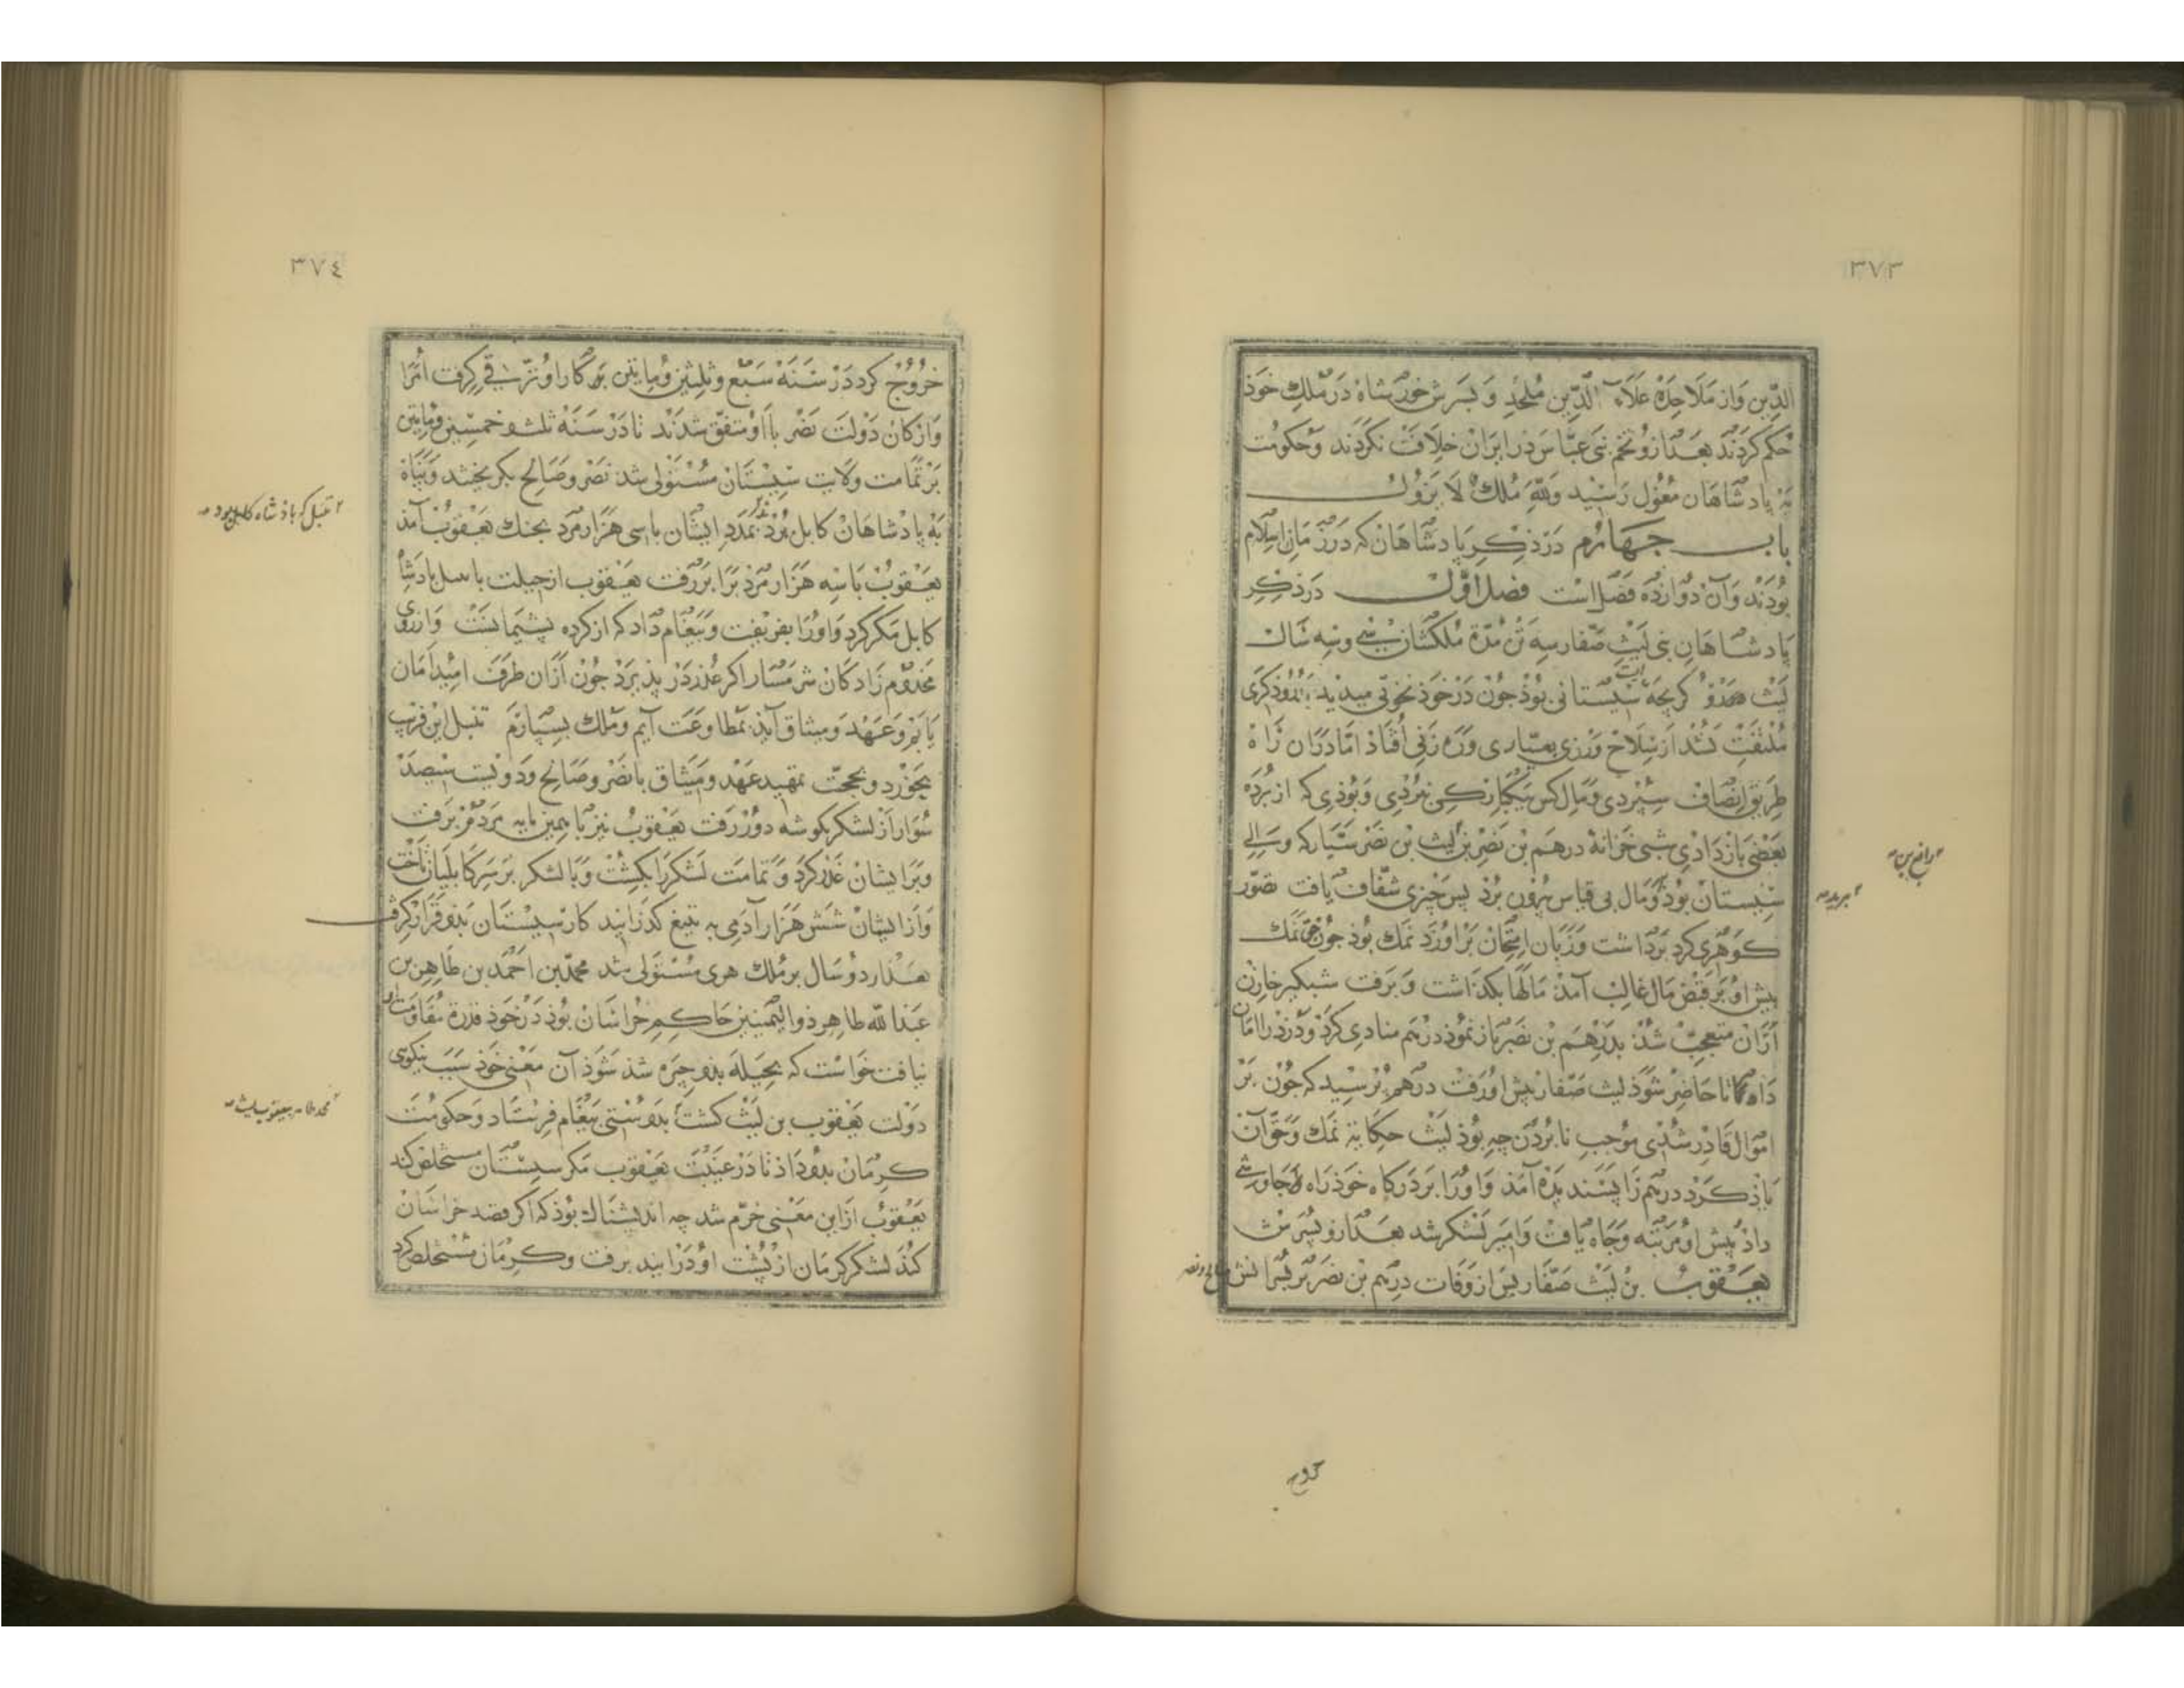 ٣٧٣
الدّين وَاز مَلَاحِدَه عَلَاء الدّين مُلحِد وَ پسَرش خورشاه دَر مُلك خوذ
حُكم كردَند بعَد ازو تخم بَنی عبّاس در ایرَان خلَافت نكردَند وَ حكومت
به پادشاهان مغول رَسیْد وَ لِلّه مُلك لَا یزول
باب جهارم در ذكر پادشاهان كه در زمان اسلام
بوُدَند وَ آن دوازده فصل است فصل اوّل در ذكر
پادشاهان بنی لیث صفّار سه تن مُدّة مُلكشان سی و سه سال
لیث رویكر بجهٔ سیستانی بوُذ جون دَر خوذ نخوتی میدید برُوُذكرَی
مُلتفت نشُد از سِلاح وَرزی بعیّاری وَ رَه زنی افتاذ امّا دَران رَاه
طریق انصاف سپردی وَ مال كس بیكبار كی نبُردی وَ بوُذی كه از بُرده
بعضی باز دَاذی شبی خزانهٔ درهم بن نصر بن لیث بن نصر سیّار كه وَالی
سیستان بوُذ وَ مال بی قیاس بیرُون بُرد پس چیزی شفّاف یافت تصوّر
كوهری كرد بَردَاشت وَ زبان امتحان بَر اوُ زد نمك بوُذ جون حق نمك
پیش اوُ بر قبض مال غالب آمذ مالها بكذاشت وَ برَفت شبكیر خازن
ازان متعجب شذ بدَرهَم بن نصر باز نموذ درهم منادی كرد وَ دزد را امان
داد تا حاضر شوَذ لیث صفّار پیش اوُ رَفت درهم پُرسید كه جون بر
اموَال قادِر شُدی موُجب نابُردن چه بوُذ لیث حكایة نمك وَ حَق آن
یاذ كرد درهم رَا پسند یده آمذ وَ اوُ را بر دَركاه خوذ رَاه جاوشی
داذ پیش اوُ مَرتبه وَ جاه یافت وَ امیر لشكر شد بعَد ازو پسَرش
یعَقوب بن لیث صفّار پس از وَفات درهم بن نصر بر پسرانش صالح و نصر
رافع بن
ببرید
خروج
٣٧٤
خرُوُج كرد دَر سَنَه سَبع وَ ثلثین وَ مایتین بَر كار اوُ ترقی كرفت امرَا
وَ اركان دَوْلت نصر با اوُ متفق شدَند تا در سَنَه ثلث و خمسین وَ مایتین
بَر تمامت ولایت سیستان مُستوْلی شد نصر وَ صالح بكریختند وَ پناه
به پادشاهان كابل بُردند بمدد ایشان با سی هَزار مرد بجنك یعَقوُب آمذ
یعَقوُب با سه هَزار مَرد بَرابَر رَفت یعَقوب از حیلت با تنبل پادشاه
كابل مكر كرد وَ اوُ را بفریفت وَ پیغام داد كه از كرده پشیمانست وَ از روی
مَخدوم زادكان شرمسار اكر عُذر در پذیرَد جون ازان طرف امید امان
یابم وَ عَهد وَ میثاق آید بمطاوعَت آیم وَ ملك بسپارَم تنبل این فریب
بخوُرد و بحجت تمهید عَهد وَ میثاق با نصر وَ صالح وَ دویست سیصد
سوُار از لشكر بكوشه دوُر رَفت یعَقوُب نیز با همین مایه مَردم برَفت
وَ برایشان غدر كرد وَ تمامت لشكر را بكشت وَ با لشكر بر سر كابلیان تاخت
وَ از ایشان شش هَزار آدَمی به تیغ كذرانید كار سیستان بذو قرار كرفت
بعَد از دوُ سال بر مُلك هری مُستوَلی شد محمّد بن احمَد بن طاهِر بن
عَبدالله طاهِر ذوالیمنین حاكم خُراسان بوُذ دَر خوَذ قدرة مقاوَمت او
نیافت خوَاست كه بحیله بذو چیره شذ شوَذ آن مَعنی خوَذ سَبَب نیكویی
دَوْلت یعَقوب بن لیث كشت بدو سُستی پیغام فرِستاد وَ حكومَت
كرمان بذو داذ تا دَر غیبت یعَقوب مكر سیستان مستخلص كند
یعَقوُب ازاین معَنی خرّم شد چه اندیشناك بوُذ كه اكر قصد خراسان
كُند لشكر كرمان از پُشت اوُ درَایند برفت و كرمان مُستخلص كرد
تنبل كه پادشاه كابل بود